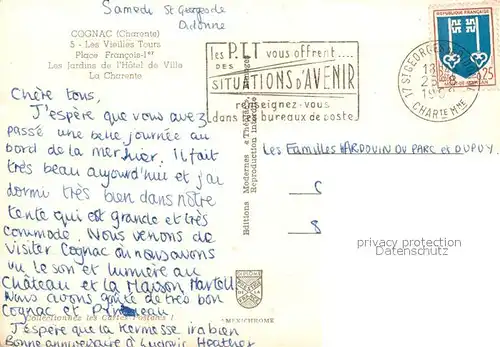 Samedi St Georges de
Didonne
COGNAC (Charente)
5 - Les Vieilles Tours
Place François-1er
Les Jardins de l'Hôtel de Ville
La Charente
Chère tous,
J'espère que vous avez
passé une belle journée au
bord de la mer hier. Il fait
très beau aujourd'hui et j'ai
dormi très bien dans notre
tente qui est grande et très
commode. Nous venons de
visiter Cognac où nous avons
vu le son et lumière au
Château et la Maison Martell
Nous avons goûté de très bon
Cognac et Pineau
J'espère que la Kermesse ira bien
Bonne anniversaire à Ludovic Heather
Collectionnez les Cartes Postales !
les P.T.T vous offrent....
DES
SITUATIONS d'AVENIR
renseignez-vous
dans les bureaux de poste
17 ST GEORGES
CHARTE MME
REPUBLIQUE FRANÇAISE
0,25
Editions Modernes « Théojac », Limoges
Reproduction interdite
Les Familles HARDOUIN DU PARC et DUPUY.
5
8
privacy protection
DELCAMPE.NET
MEXICHROME